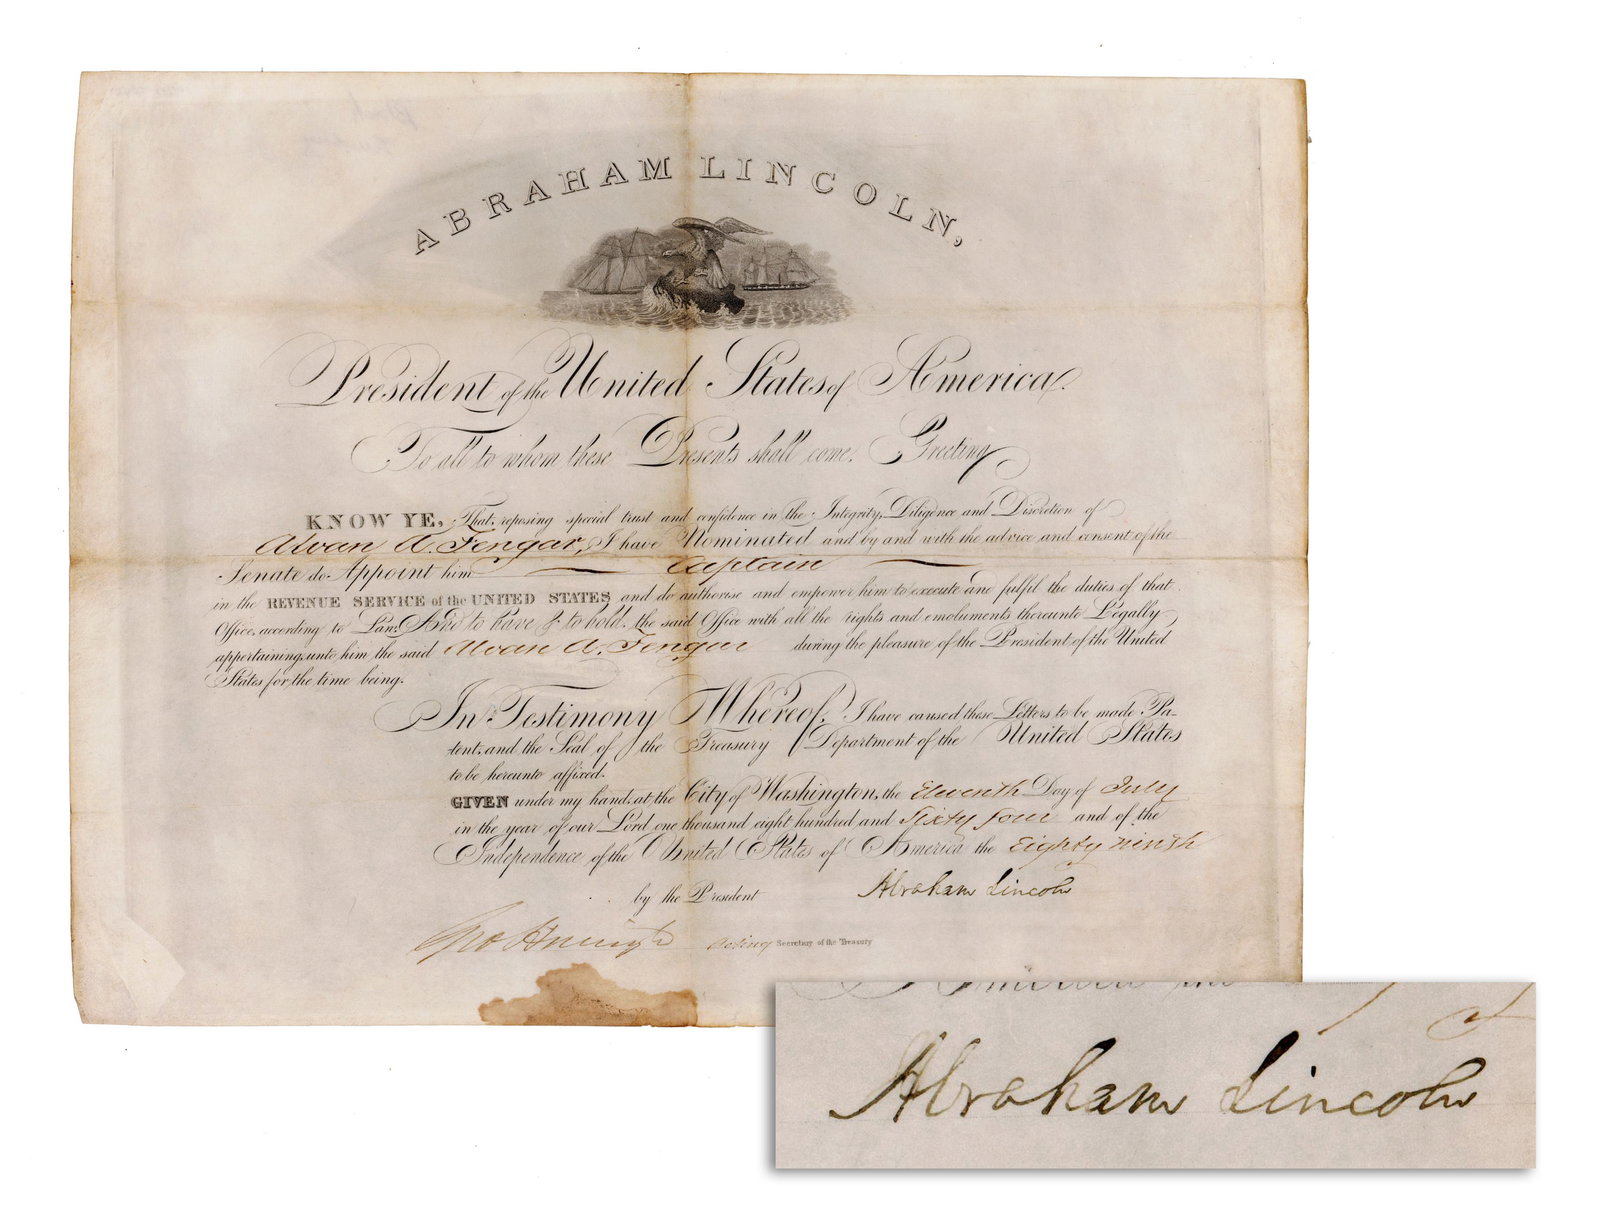 ABRAHAM LINCOLN,
President of the United States of America.
To all to whom these Presents shall come. Greeting
KNOW YE, That, reposing special trust and confidence in the Integrity, Diligence and Discretion of
Alvan A. Fengar, I have Nominated and by and with the advice and consent of the
Senate do Appoint him Captain
in the REVENUE SERVICE of the UNITED STATES and do authorise and empower him to execute and fulfil the duties of that
Office, according to Law, And to have & to hold, the said Office with all the rights and emoluments thereunto Legally
appertaining, unto him the said Alvan A. Fengar during the pleasure of the President of the United
States for the time being.
In Testimony Whereof, I have caused these Letters to be made Pa-
tent, and the Seal of the Treasury Department of the United States
to be hereunto affixed.
GIVEN under my hand, at the City of Washington, the Eleventh Day of July
in the year of our Lord one thousand eight hundred and Sixty four and of the
Independence of the United States of America the Eighty ninth
by the President Abraham Lincoln
Geo Harrington acting Secretary of the Treasury
America the
Abraham Lincoln